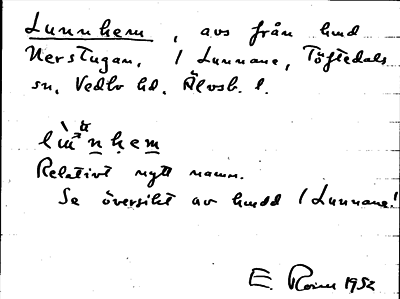 Lunnhem, avs från hmd
Nerstugan, 1 Lunnane, Töftedals
sn, Vedbo hd, Älvsb. l.
Relativt nytt namn.
Se översikt av hmdd 1 Lunnane!
E. 1952